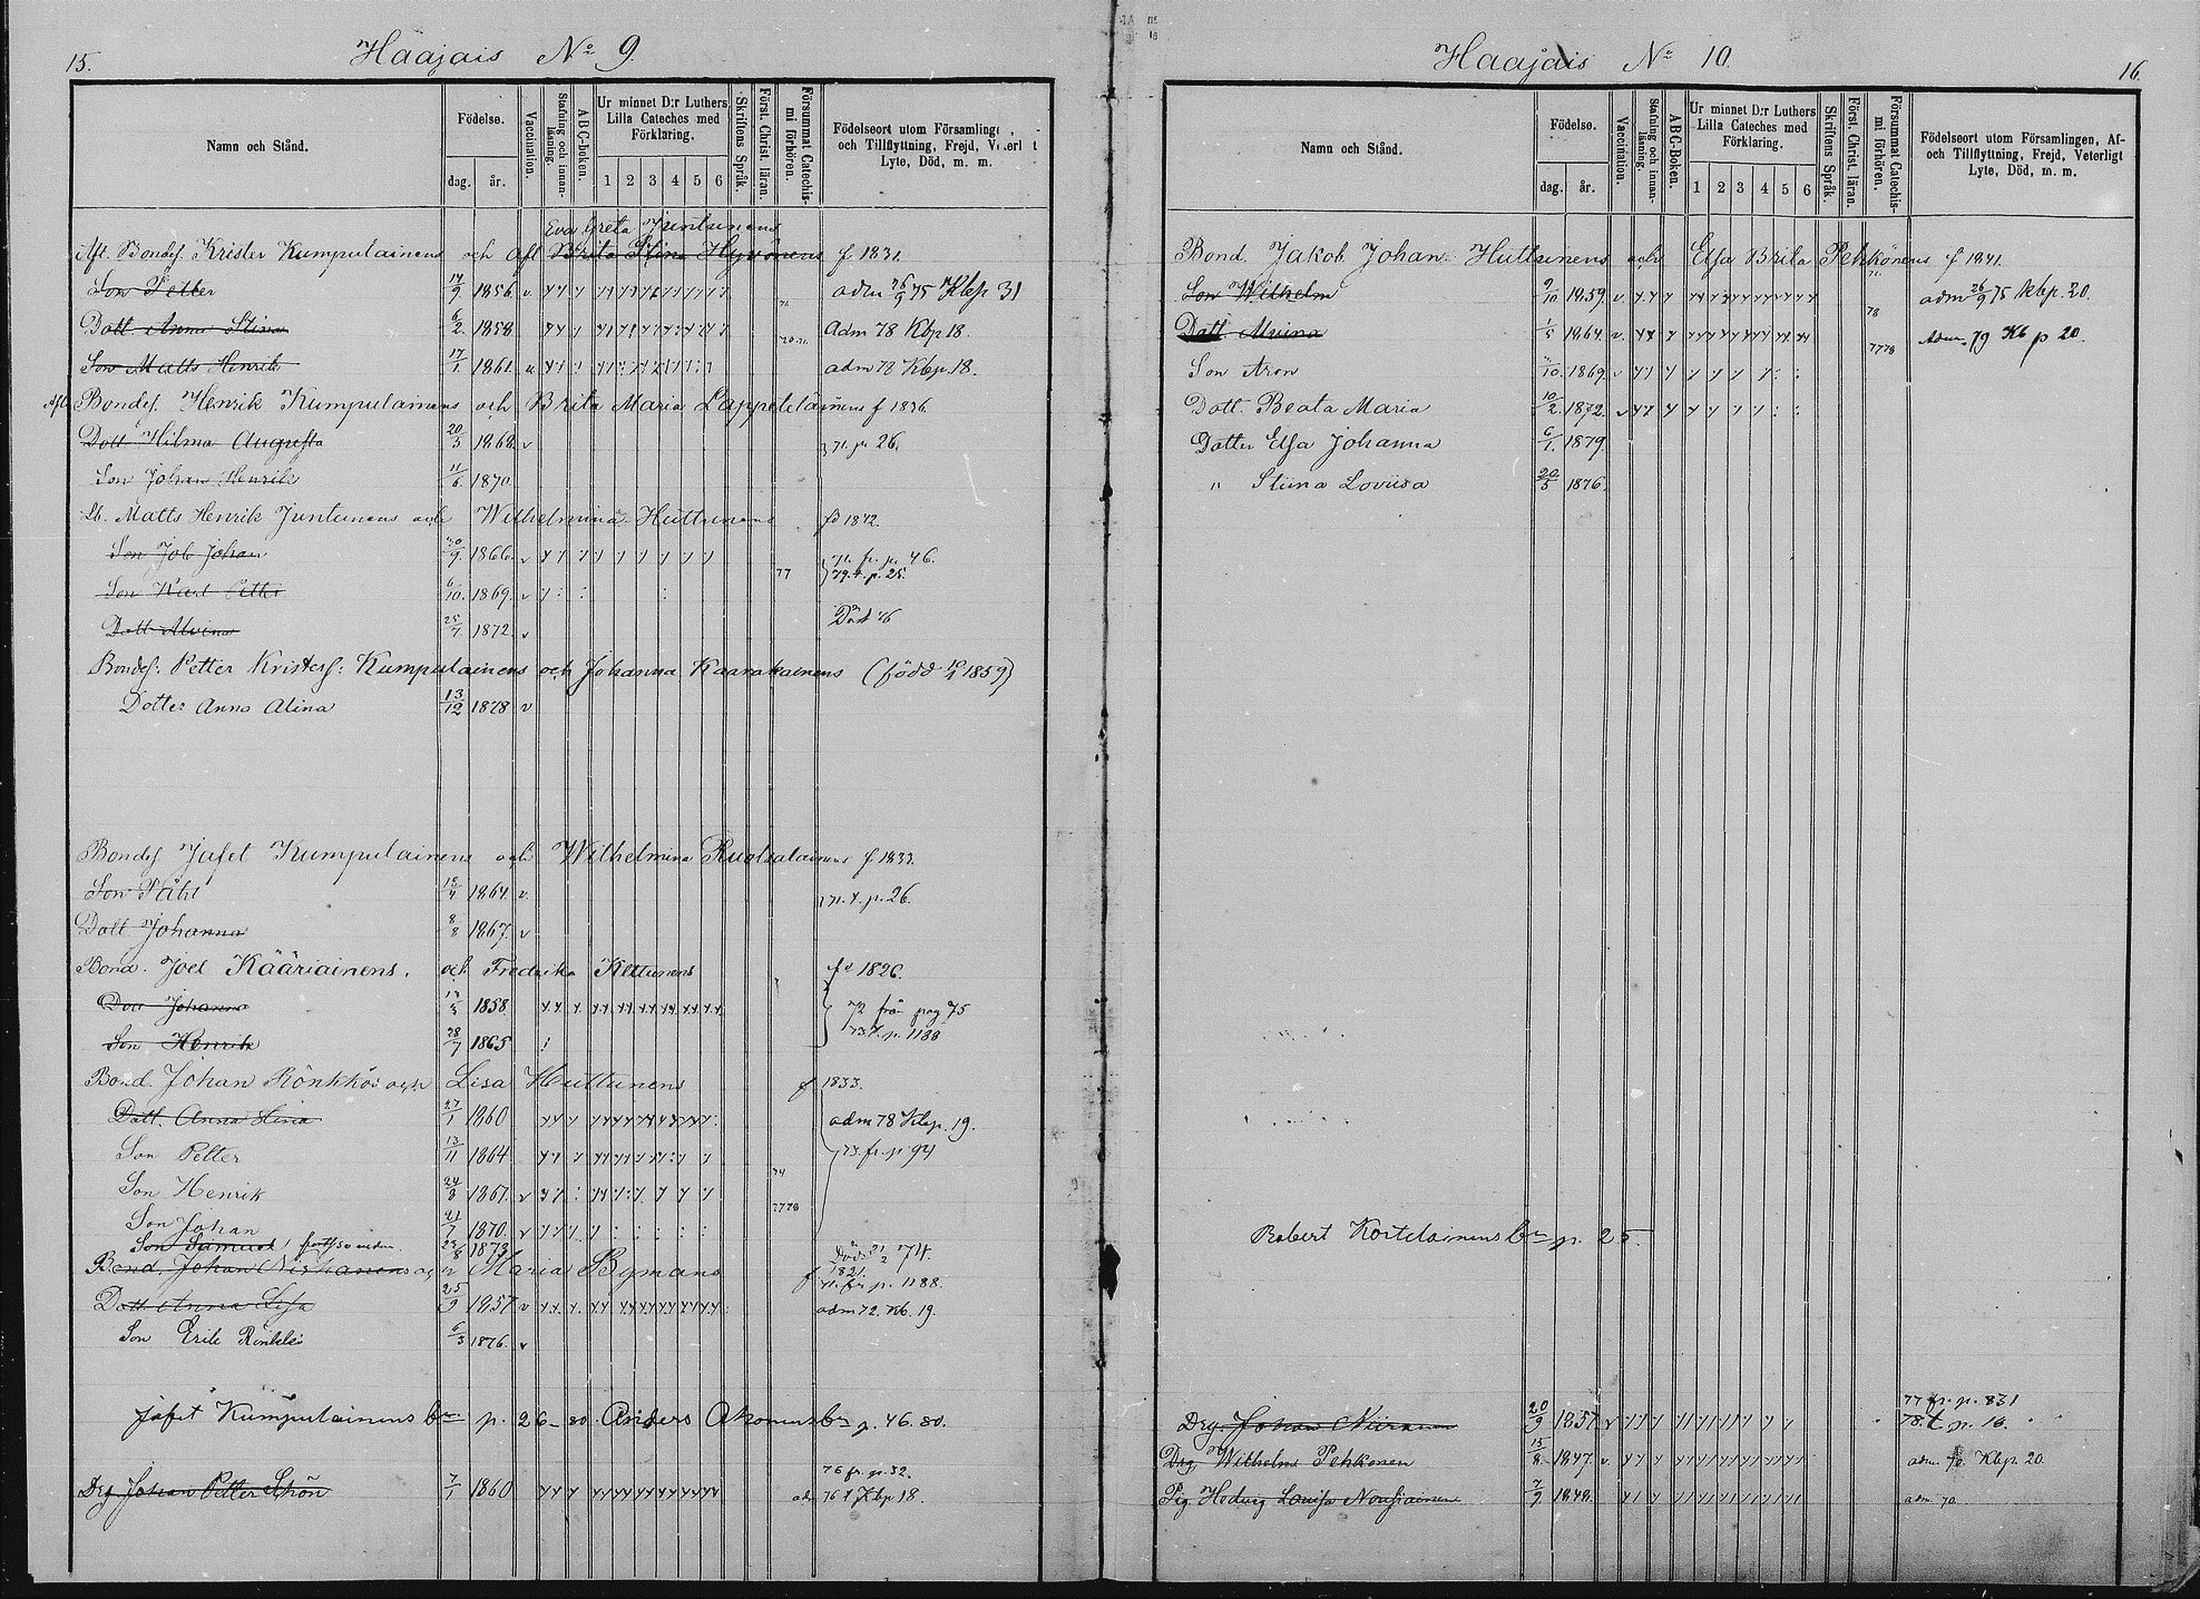 15.
Haajais No 9.
Namn och Stånd.
Födelse.
dag. år.
Vaccination.
Stafning och innan-läsning.
ABC-boken.
Ur minnet D:r Luthers Lilla Cateches med Förklaring.
1 2 3 4 5 6
Skriftens Språk.
Först. Christ. läran.
Försummat Catechis-mi förhören.
Födelseort utom Församling
och Tillflyttning, Frejd,
Lyte, Död, m. m.
Eva Greta Juntunens
Afl. Bondes. Krister Kumpulainens och afl Brita Stina Hyvönens f 1831.
Son Petter 14/9 1856. v. adm 26/9 75 Kbp 31
Dott Anna Stina 6/2 1858 Adm 78 Kbp 18.
Son Matts Henrik 17/1 1861. adm 78 Kbp. 18.
Afl. Bondes. Henrik Kumpulainens och Brita Maria Lappeteläinens f 1836.
Dott Hilma Augusta 20/3 1868 v p. 26.
Son Johan Henrik 11/6 1870
Lb. Matts Henrik Juntunens och Wilhelmina Huttunens fd 1842.
Son Job Johan 30/9 1866. v 71. fr. p. 46.
77 79. t. p. 25.
Son Karl Petter 6/10. 1869. v
Dott Alvina 25/7 1872. v Död 76
Bondes: Petter Kristers: Kumpulainens och Johanna Kaarakainens (född 1859)
Dotter Anna Alina 13/12 1878 v
Bondes Jafet Kumpulainens och Wilhelmina Ruotsalainens f 1833.
Son Påhl 1864. v. 71. t. p. 26.
Dott Johanna 8/8 1867. v
Bond. Joel Kääriäinens, och Fredrika Kettunens fd 1826.
Dott Johanna 1858 72 från pag 75
73. t. p. 1188
Son Henrik 28/7 1865
Bond. Johan Rönkkös och Lisa Huttunens f 1833.
Dott. Anna Stina 27/1 1860 adm 78 Kbp. 19.
Son Petter 13/11 1864 73. fr. p 94
Son Henrik 24/8 1867. v 7778
Son Johan 21/7 1870. v
Son Samuel 1873
Bond. Johan och Maria Bymans f 1821.
fr. p. 1188.
Dott Anna Lisa 25/9 1857 v adm 72. Kb. 19.
Son Erik 6/3 1876. v
Jafet Kumpulainens p. 26 - 80. Anders p. 46. 80.
76 fr. p. 32.
Drg Johan Petter Schön 7/1 1860 adm 76 t Kbp 18.
16.
Haajais No 10.
Namn och Stånd.
Födelse.
dag. år.
Vaccination.
Stafning och innan-läsning.
ABC-Boken.
Ur minnet D:r Luthers Lilla Cateches med Förklaring.
1 2 3 4 5 6
Skriftens Språk.
Först. Christ. läran.
Försummat Catechis-mi förhören.
Födelseort utom Församlingen, Af-
och Tillflyttning, Frejd, Veterligt
Lyte, Död, m. m.
Bond. Jakob Johan Huttunens och Elsa Brita Pehkönens f 1841.
Son Wilhelm 9/10 1859. v. adm 26/9 75 Kbp. 20.
78
Dott. Alviina 1/5 1864. v. Adm. 79 Kb p 20.
7778
Son Aron 1869. v
Dott. Beata Maria 10/2. 1872. v
Dotter Elsa Johanna 6/1. 1879.
" Stiina Loviisa 20/5 1876.
Robert Kortelainens p. 25.
77 fr. p. 831
Drg. Johan 20/9 1857. v 78. t p. 16.
Drg. Wilhelm Pehkonen 15/8 1847. v. adm. 70. Kbp. 20.
Pig Hedvig Lovisa Nousiainen 7/9 1848. adm 70